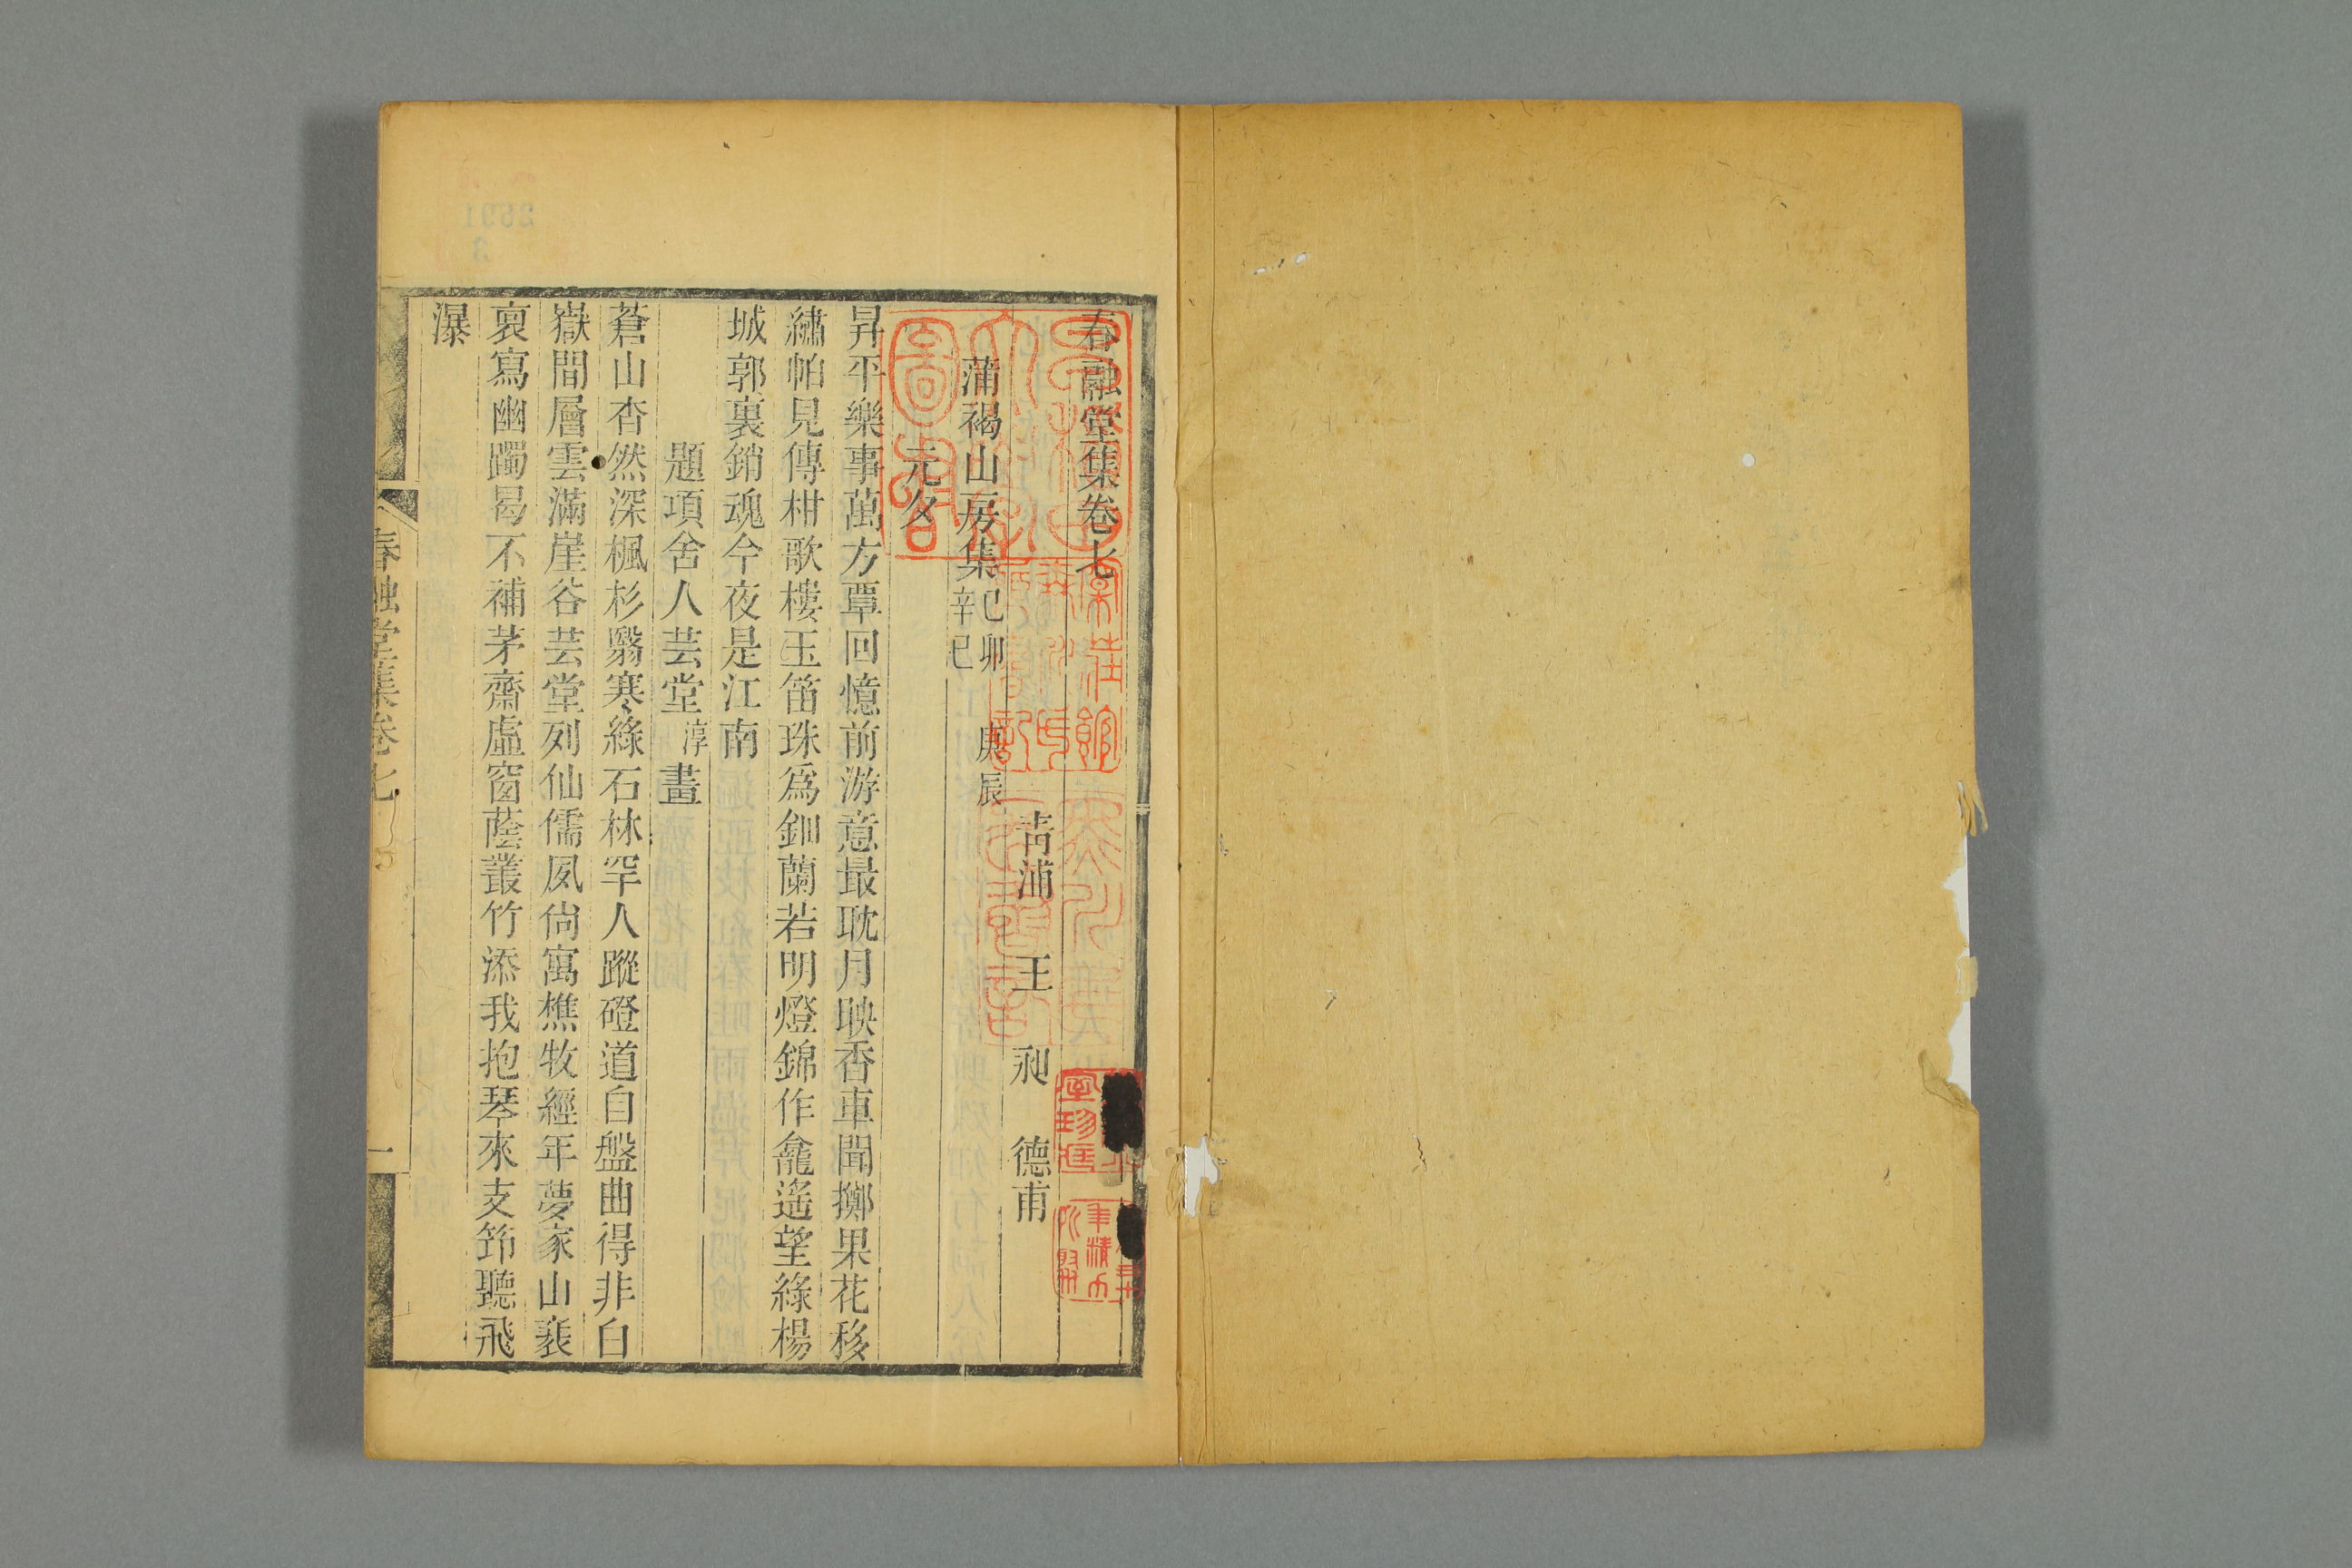 春融堂集卷七
青浦 王 昶 德甫
蒲褐山房集 己卯 庚辰
辛巳
元夕
昇平樂事萬方覃回憶前游意最耽月映香車聞擲果花移
繡帕見傳柑歌樓玉笛珠為鈿蘭若明燈錦作龕遙望綠楊
城郭裏銷魂今夜是江南
題項舍人芸堂淳畫
蒼山杳然深楓杉翳寒綠石林罕人蹤磴道自盤曲得非白
嶽間層雲滿崖谷芸堂列仙儒夙尚寓樵牧經年夢家山裴
裒寫幽躅曷不補茅齋虛窗蔭叢竹添我抱琴來支筇聽飛
瀑
春融堂集卷七
一